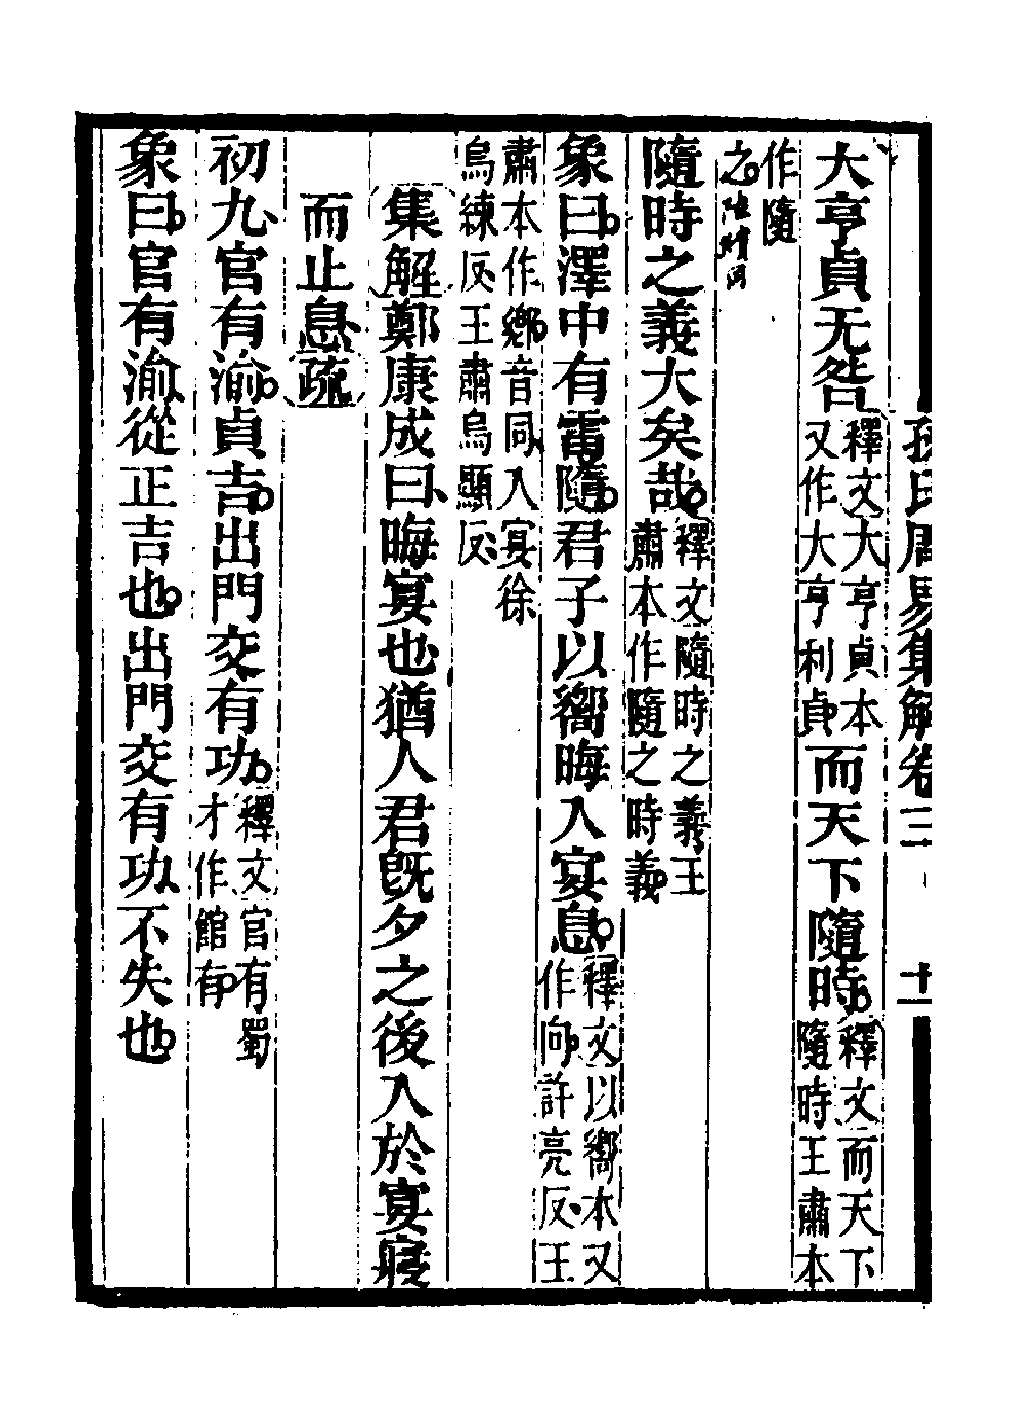 孫氏周易集解卷三 十一
大亨貞无咎釋文大亨貞本又作大亨利貞而天下隨時釋文而天下隨時王肅本
作隨之
隨時之義大矣哉釋文隨時之義王肅本作隨之時義
象曰澤中有雷隨君子以嚮晦入宴息釋文以嚮本又作向許亮反王
肅本作鄉音同入宴徐烏練反王肅烏顯反
集解鄭康成曰晦宴也猶人君既夕之後入於宴寢
而止息疏
初九官有渝貞吉出門交有功釋文官有蜀才作館有
象曰官有渝從正吉也出門交有功不失也